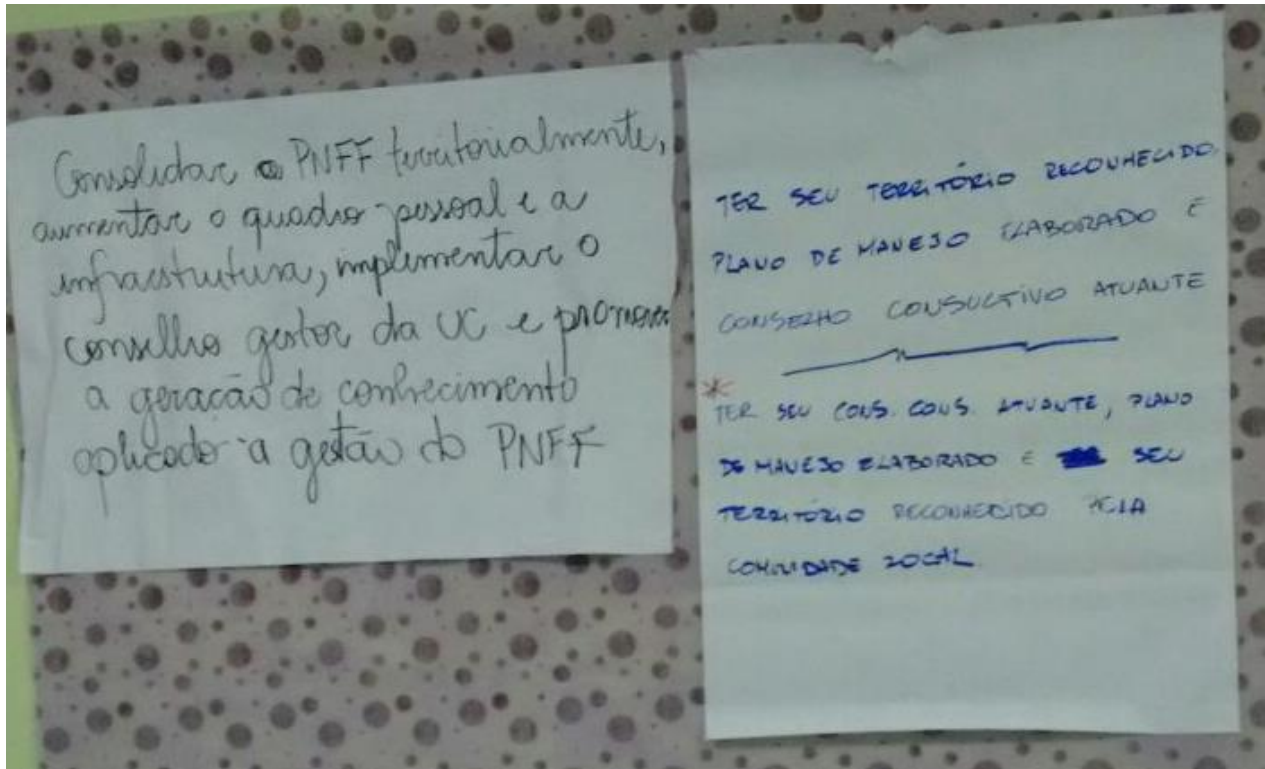 Consolidar o PNFF territorialmente,
aumentar o quadro pessoal e a
infraestrutura, implementar o
conselho gestor da UC e promover
a geração de conhecimento
aplicado a gestão do PNFF
TER SEU TERRITÓRIO RECONHECIDO,
PLANO DE MANEJO ELABORADO E
CONSELHO CONSULTIVO ATUANTE
* TER SEU CONS. CONS. ATUANTE, PLANO
DE MANEJO ELABORADO E SEU
TERRITÓRIO RECONHECIDO PELA
COMUNIDADE LOCAL